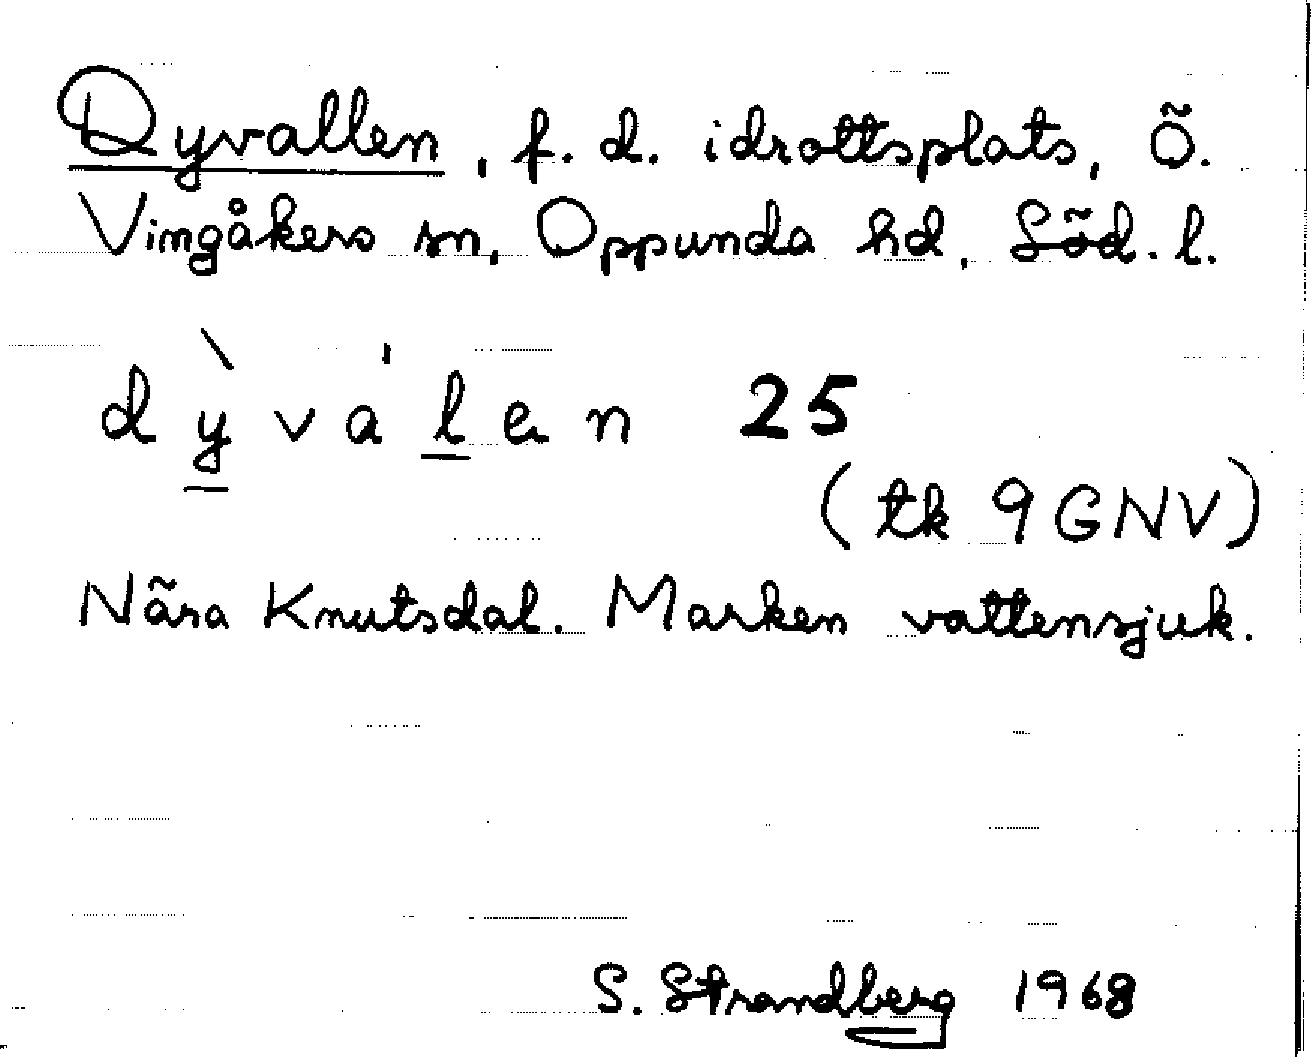 Dyvallen, f. d. idrottsplats, Ö.
Vingåkers sn, Oppunda hd, Söd. l.
dỳválen 25
(tk 9GNV)
Nära Knutsdal. Marken vattensjuk.
S. Strandberg 1968